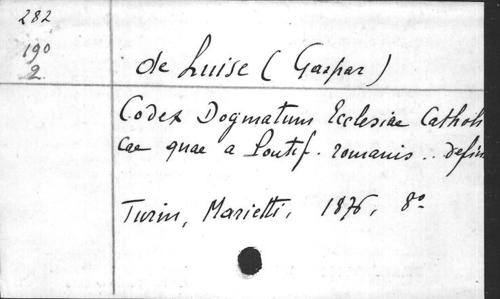 282
190
2
de Luise (Gaspar)
Codex Dogmatum Ecclesiae Catholi
cae quae a Pontif. romanis .. defin
Turin, Marietti, 1876, 8º